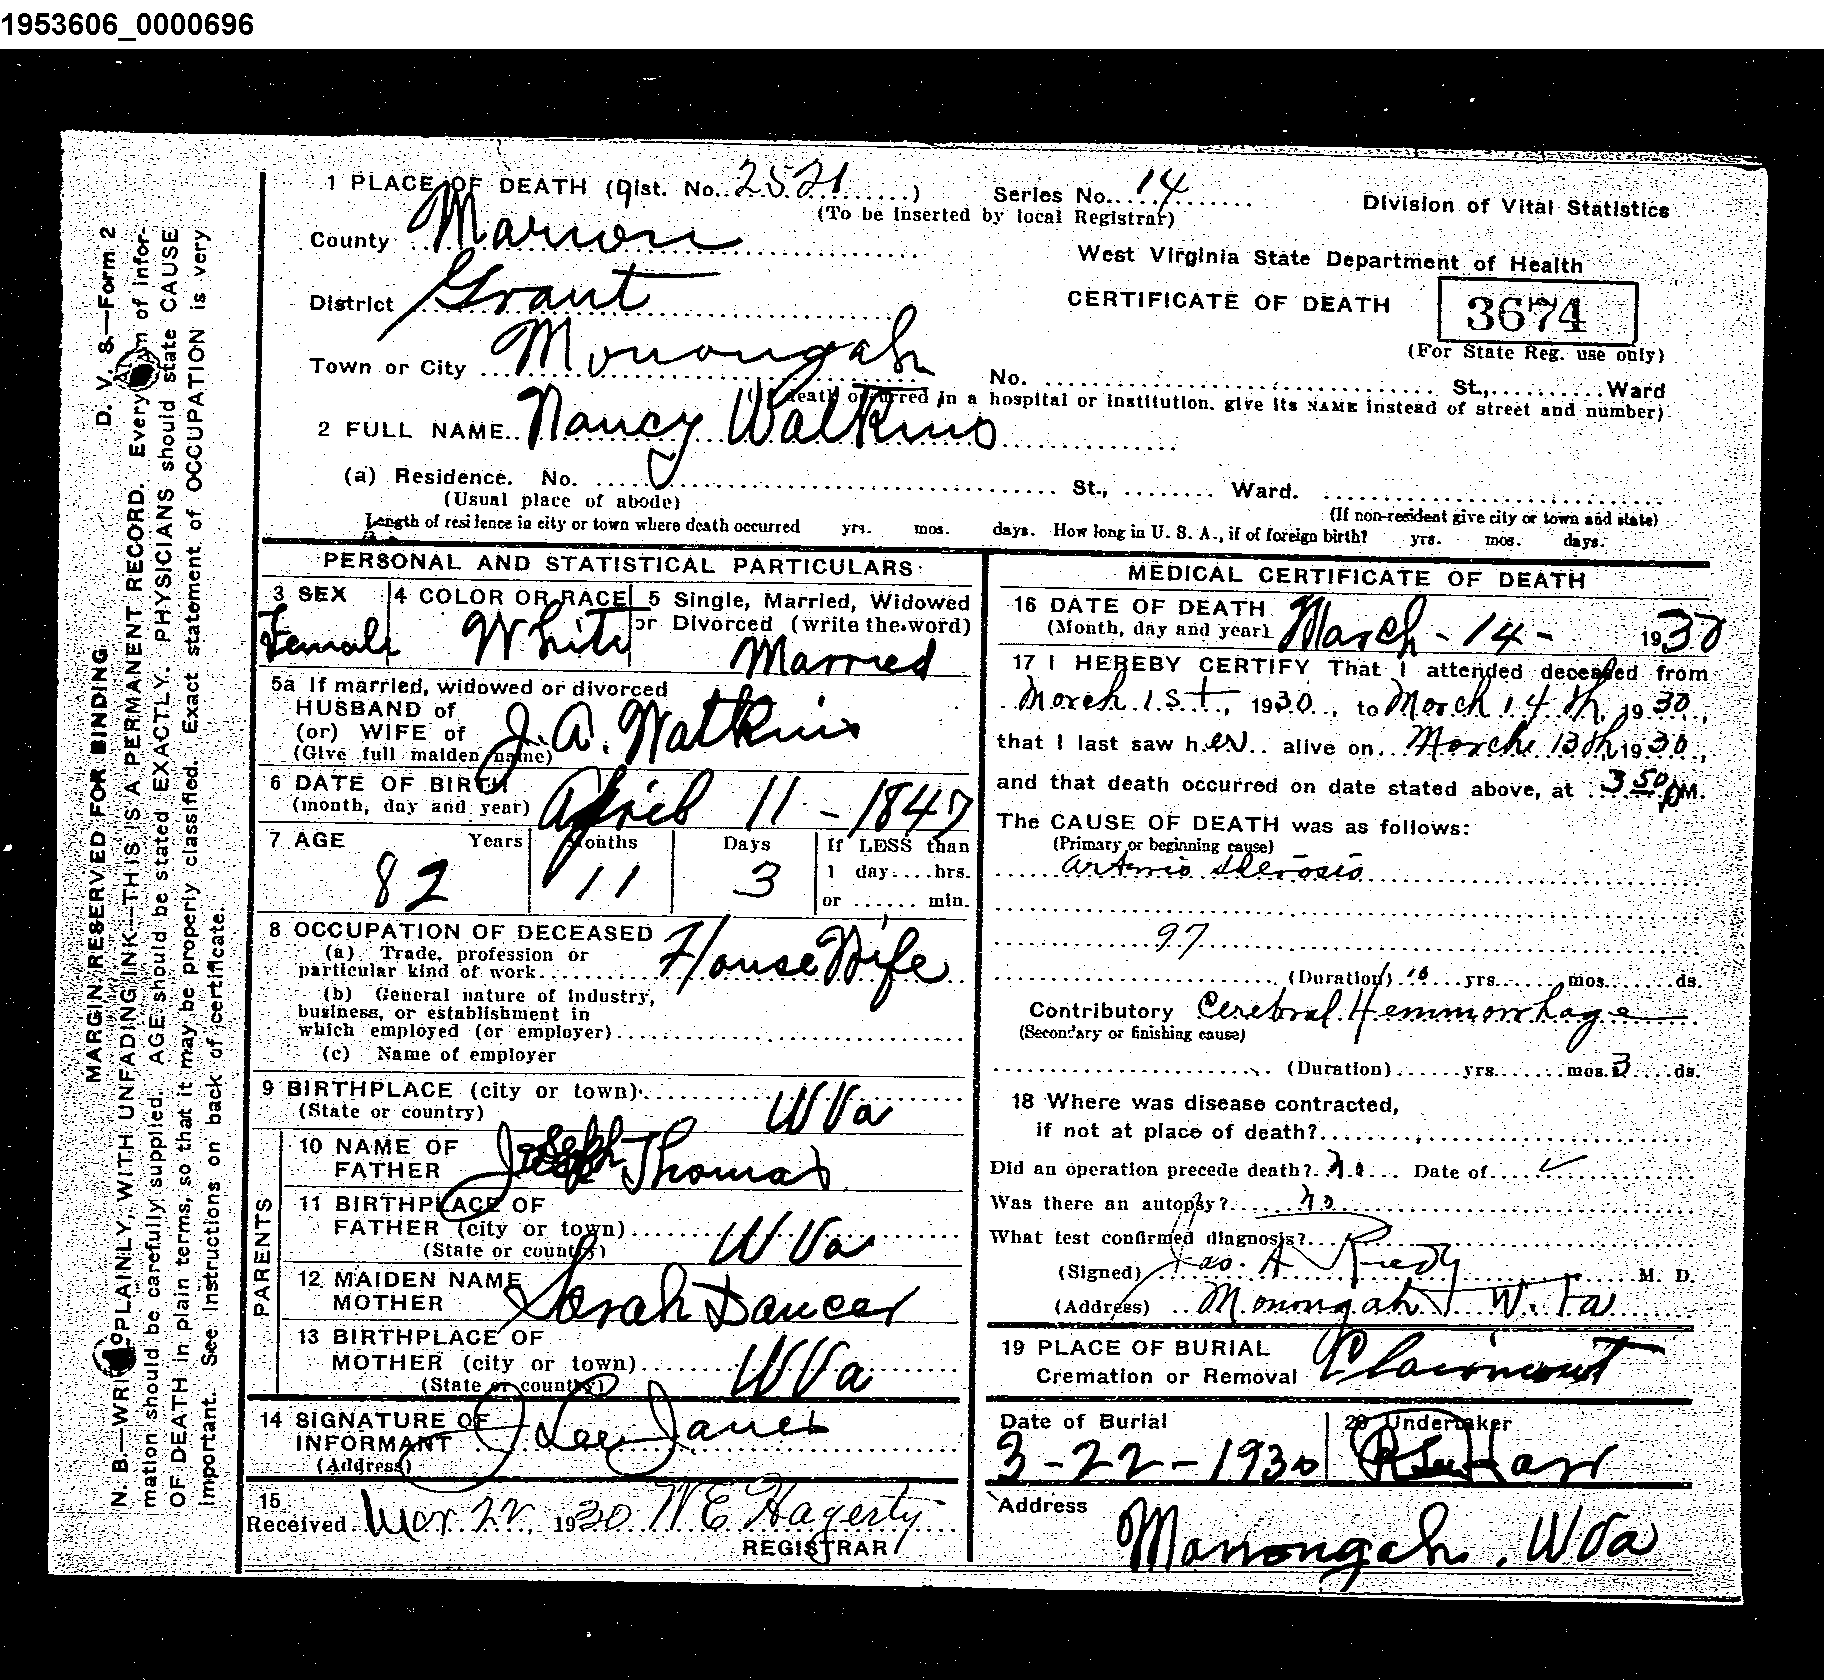 1953606_0000696
1 PLACE OF DEATH (Dist. No. 2521 ) Series No. 14
(To be inserted by local Registrar)
Division of Vital Statistics
County Marion
West Virginia State Department of Health
District Grant
CERTIFICATE OF DEATH 3674
(For State Reg. use only)
Town or City Monongah
No. St., Ward
death occurred in a hospital or institution. give its NAME instead of street and number)
2 FULL NAME Nancy Watkins
(a) Residence. No. St., Ward.
(Usual place of abode) (If non-resident give city or town and state)
Length of residence in city or town where death occurred yrs. mos. days. How long in U. S. A., if of foreign birth? yrs. mos. days.
PERSONAL AND STATISTICAL PARTICULARS
3 SEX 4 COLOR OR RACE 5 Single, Married, Widowed
or Divorced (write the word)
Female White Married
5a If married, widowed or divorced
HUSBAND of
(or) WIFE of J. A. Watkins
(Give full maiden name)
6 DATE OF BIRTH
(month, day and year) April 11 - 1847
7 AGE Years Months Days If LESS than
82 11 3 1 day....hrs.
or ...... min.
8 OCCUPATION OF DECEASED
(a) Trade, profession or
particular kind of work House Wife
(b) General nature of industry,
business, or establishment in
which employed (or employer)
(c) Name of employer
9 BIRTHPLACE (city or town)
(State or country) W Va
PARENTS
10 NAME OF
FATHER Joseph Thomas
11 BIRTHPLACE OF
FATHER (city or town)
(State or country) W Va
12 MAIDEN NAME
MOTHER Sarah Dancer
13 BIRTHPLACE OF
MOTHER (city or town)
(State or country) W Va
14 SIGNATURE OF
INFORMANT J Lee Janes
(Address)
15
Received Mar 22 1930 W E Hagerty
REGISTRAR
MEDICAL CERTIFICATE OF DEATH
16 DATE OF DEATH
(Month, day and year) March - 14 - 1930
17 I HEREBY CERTIFY That I attended deceased from
March 1st, 1930, to March 14th, 1930,
that I last saw her alive on March 13th, 1930,
and that death occurred on date stated above, at 3 50 P M.
The CAUSE OF DEATH was as follows:
(Primary or beginning cause)
Arterio Sclerosis
97
(Duration) 10 yrs. mos. ds.
Contributory Cerebral Hemmorrhage
(Secondary or finishing cause)
(Duration) yrs. mos. 3 ds.
18 Where was disease contracted,
if not at place of death?
Did an operation precede death? No Date of
Was there an autopsy? no
What test confirmed diagnosis?
(Signed) Jas. A Reedy M. D.
(Address) Monongah W. Va
19 PLACE OF BURIAL
Cremation or Removal
Date of Burial 20 Undertaker
3 - 22 - 1930
Address
Monongah, W Va
D. V. S.—Form 2
MARGIN RESERVED FOR BINDING
N. B.—WRITE PLAINLY, WITH UNFADING INK—THIS IS A PERMANENT RECORD. Every item of infor-
mation should be carefully supplied. AGE should be stated EXACTLY. PHYSICIANS should state CAUSE
OF DEATH in plain terms, so that it may be properly classified. Exact statement of OCCUPATION is very
important. See Instructions on back of certificate.